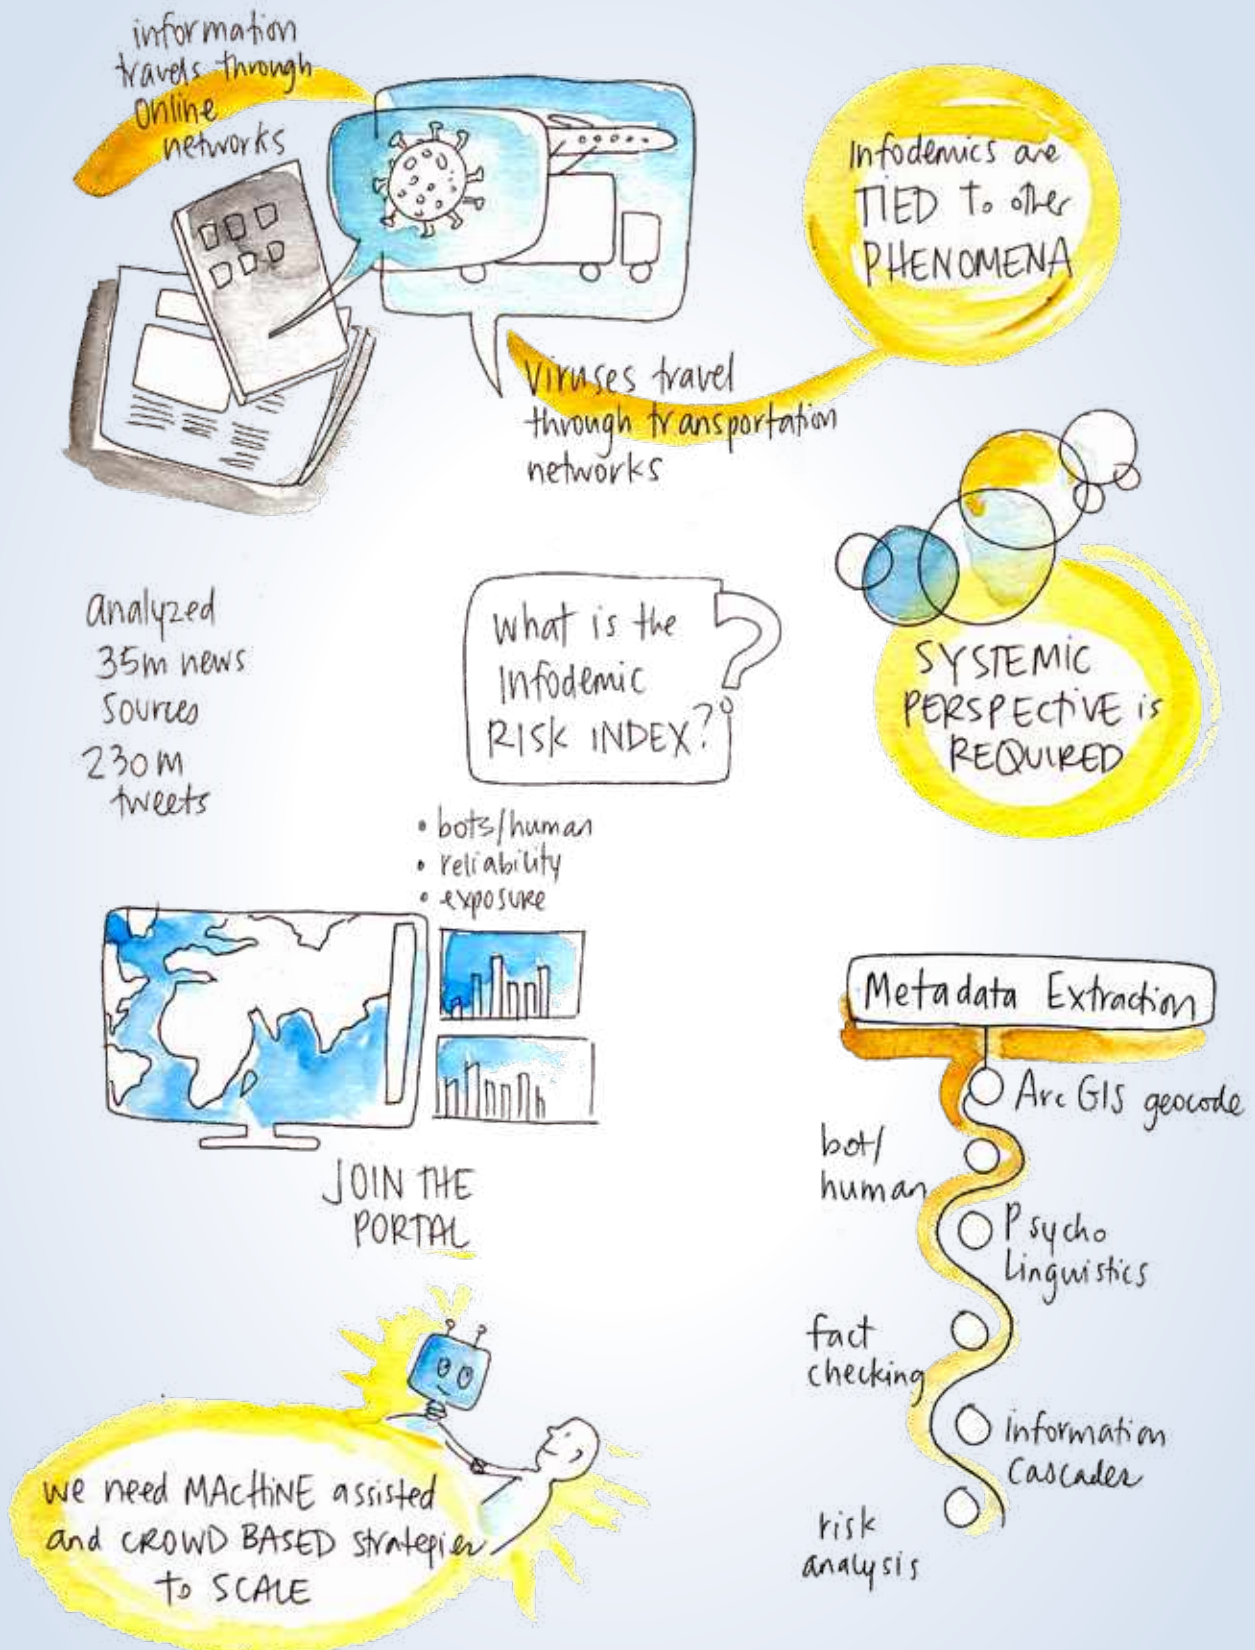 information
travels through
online
networks
Infodemics are
TIED to other
PHENOMENA
Viruses travel
through transportation
networks
analyzed
35m news
sources
230m
tweets
What is the
Infodemic
RISK INDEX?
?
SYSTEMIC
PERSPECTIVE is
REQUIRED
• bots/human
• reliability
• exposure
JOIN THE
PORTAL
Metadata Extraction
Arc GIS geocode
bot/
human
Psycho
Linguistics
fact
checking
information
cascades
risk
analysis
we need MACHINE assisted
and CROWD BASED strategies
to SCALE